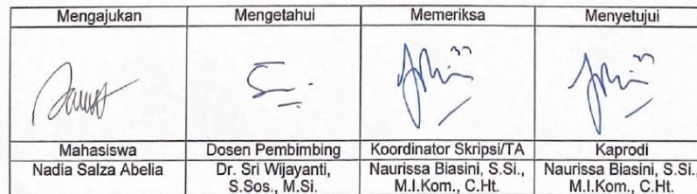 Mengajukan Mengetahui Memeriksa Menyetujui
Mahasiswa Dosen Pembimbing Koordinator Skripsi/TA Kaprodi
Nadia Salza Abelia Dr. Sri Wijayanti, Naurissa Biasini, S.Si., Naurissa Biasini, S.Si.
S.Sos., M.Si. M.I.Kom., C.Ht. M.I.Kom., C.Ht.